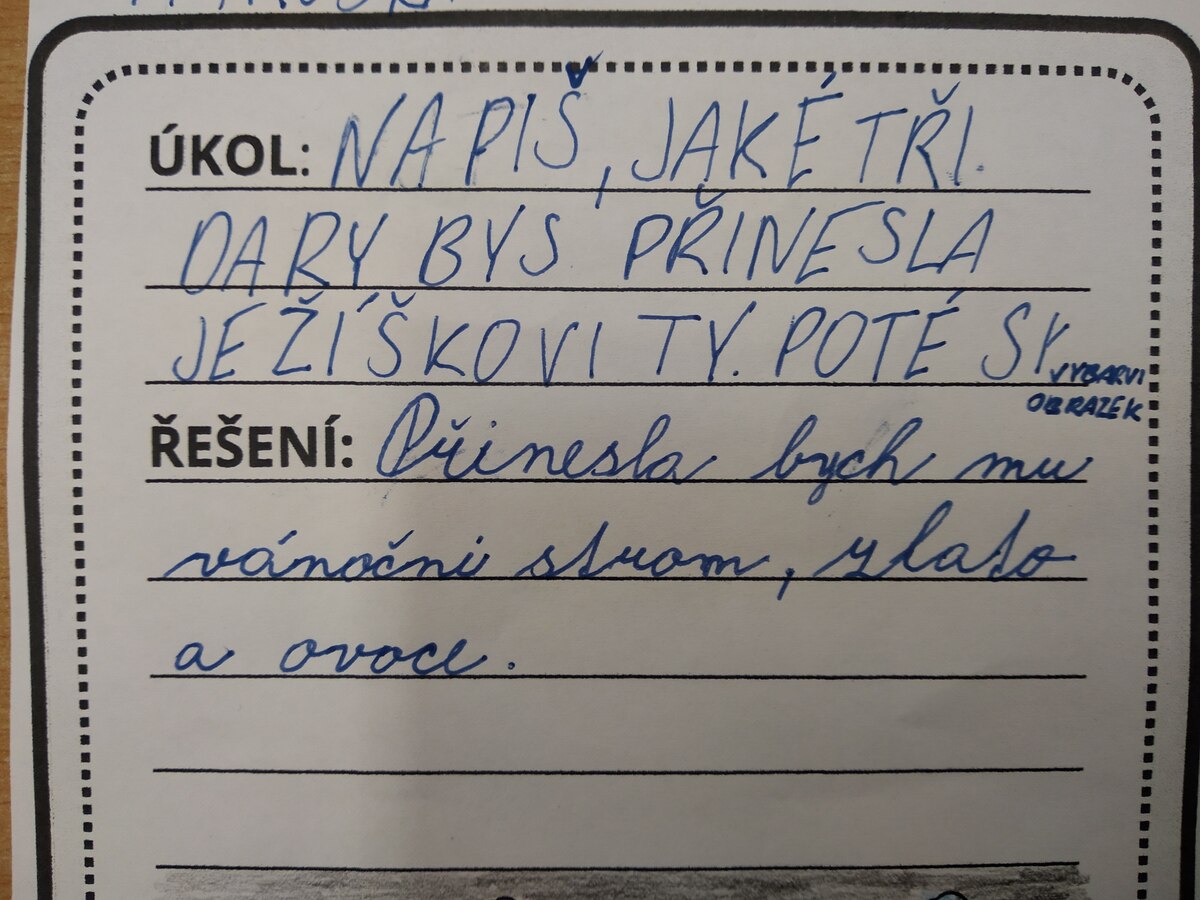 ÚKOL: NAPIŠ, JAKÉ TŘI.
DARY BYS PŘINESLA
JEŽÍŠKOVI TY. POTÉ SY
VYBARVI
OBRAZEK
ŘEŠENÍ: Přinesla bych mu
vánoční strom, zlato
a ovoce.